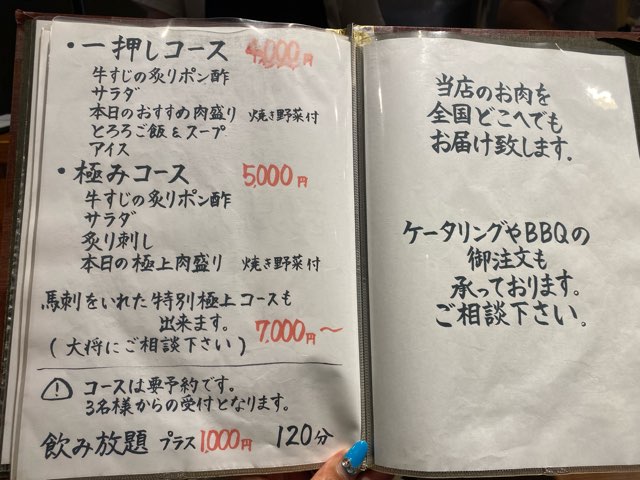 ・一押しコース 4,000円
牛すじの炙りポン酢
サラダ
本日のおすすめ肉盛り 焼き野菜付
とろろご飯&スープ
アイス
・極みコース 5,000円
牛すじの炙りポン酢
サラダ
炙り刺し
本日の極上肉盛り 焼き野菜付
馬刺をいれた特別極上コースも
出来ます。 7,000円〜
(大将にご相談下さい)
コースは要予約です。
3名様からの受付となります。
飲み放題 プラス1,000円 120分
当店のお肉を
全国どこへでも
お届け致します.
ケータリングやBBQの
御注文も
承っております。
ご相談下さい。